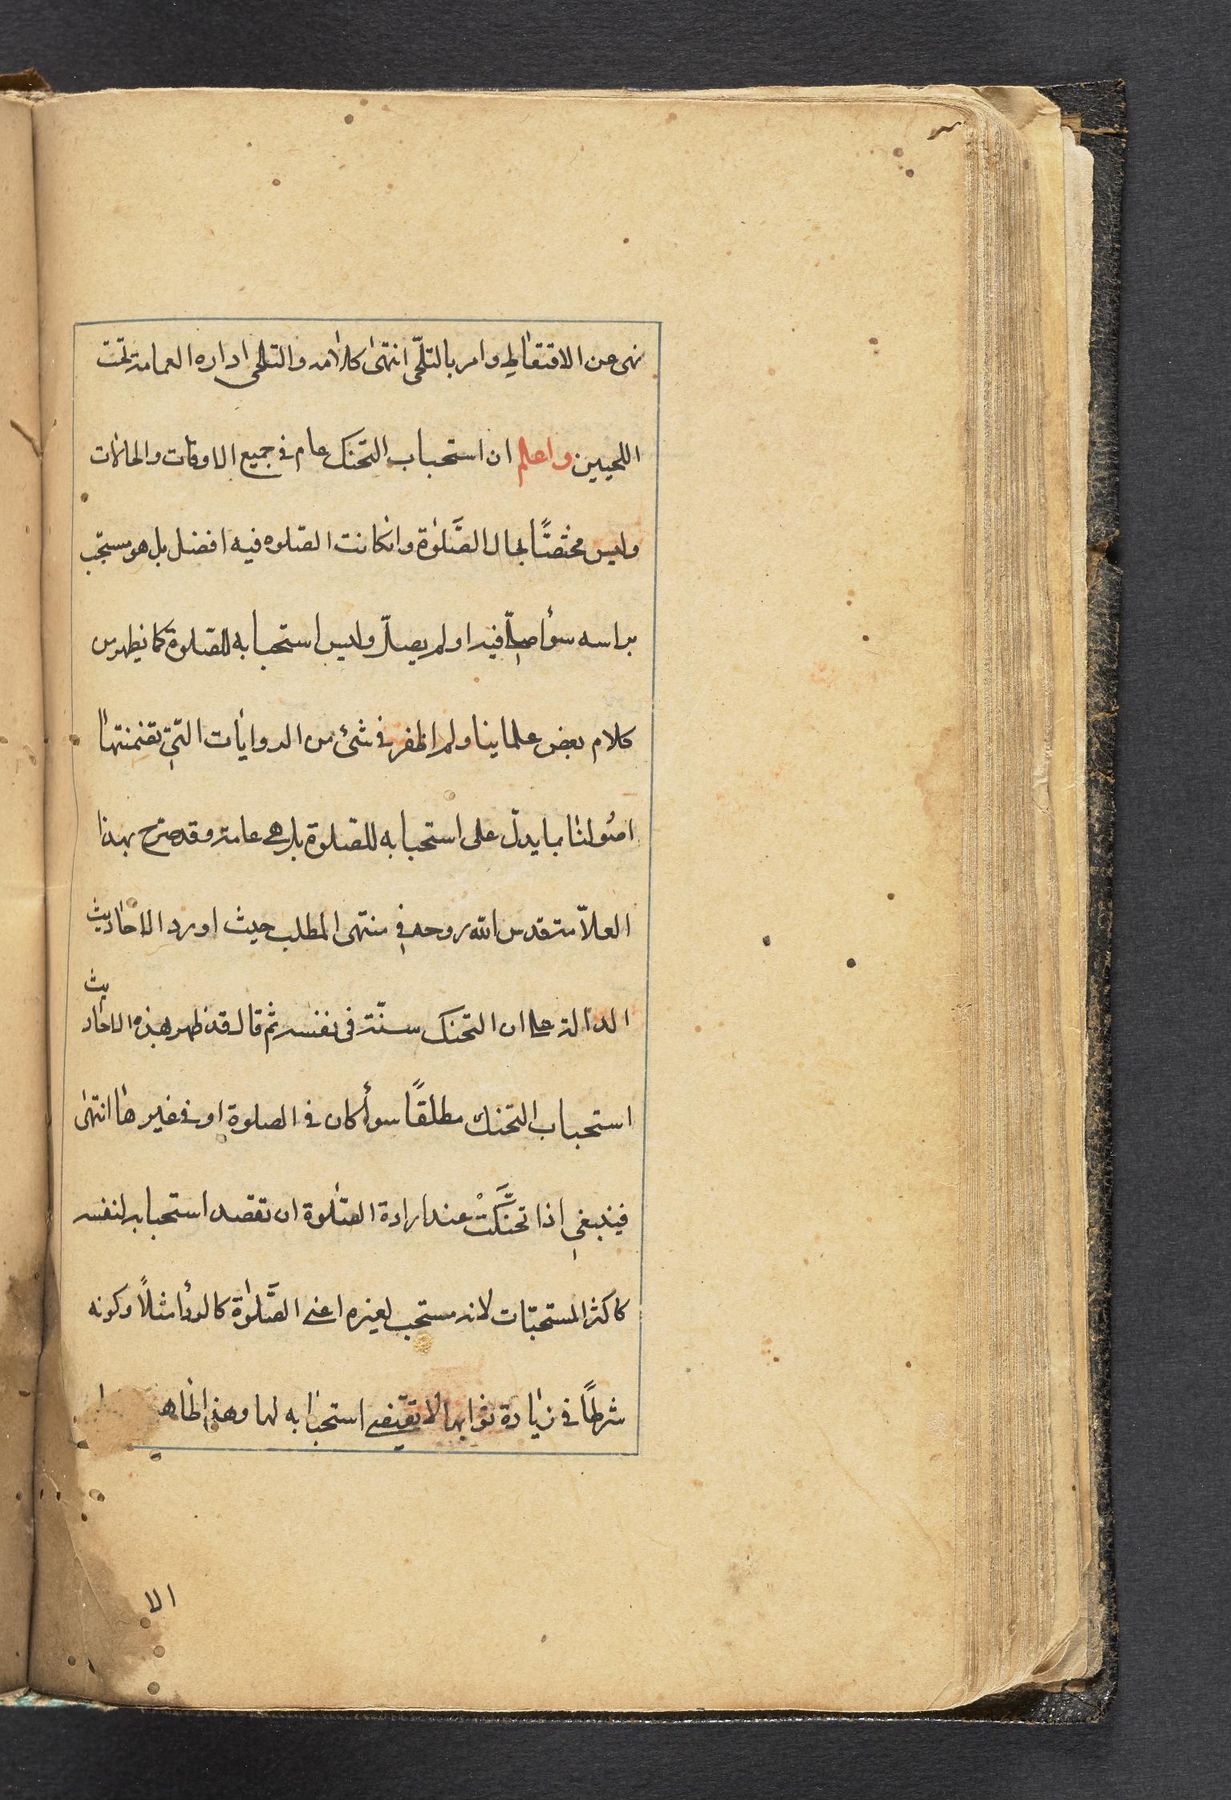 نهى عن الاقتعاط وامر بالتلحّى انتهى كلامه والتلحى اداره العمامة تحت
اللحيين واعلم ان استحباب التحنك عام فى جميع الاوقات والحالات
وليس مختصًّا بحال الصَّلوٰة وانكانت الصّلوه فيه افضل بل هو مستحبّ
براسه سوأ صلّى فيه اولم يصلّ وليس استحبابه للصّلوة كما يظهر من
كلام بعض علماينا ولم اظفر فى شئ من الروايات الّتى تضمنتها
اصُولنا بما يدلّ على استحبابه للصّلوة بل هى عامة وقد صرّح بهذا
العلاّمة قدس الله روحه فى منتهى المطلب حيث اورد الاحاديث
الدالة على ان التحنك سنّة فى نفسه ثم قال قد ظهر بهذه الاحاديث
استحباب التحنك مطلقًا سوأ كان فى الصلوة او فى غيرها انتهى
فينبغى اذا تحنَّكتْ عند ارادة الصّلوة ان تقصد استحبابه لنفسه
كاكثر المستحبّات لا انه مستحب لغيره اعنى الصَّلوٰة كالردأ مثلاً وكونه
شرطًا فى زيادة ثوابها لا يقتضى استحبابه لها وهذا ظاهر
الا